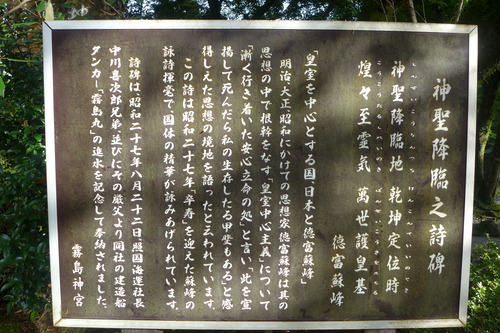 神聖降臨之詩碑
神聖降臨地 乾坤定位時
煌々至霊気 萬世護皇基
徳富蘇峰
「皇室を中心とする国、日本と徳富蘇峰」
明治・大正・昭和にかけての思想家徳富蘇峰は其の
思想の中で根幹をなす、皇室中心主義について
「漸く行き着いた安心立命の処」と言い、此を宣
揚して死んだら私の生存したる甲斐もあると感
得しえた思想の境地を語ったと云われています。
この詩は昭和二十七年、卒寿を迎えた蘇峰の
詠詩揮毫で国体の精華が詠みあげられています。
詩碑は、昭和二十七年八月二十二日照国海運社長
中川喜次郎兄弟並びにその厳父より同社の建造船
タンカー「霧島丸」の進水を記念して奉納されました。
霧島神宮